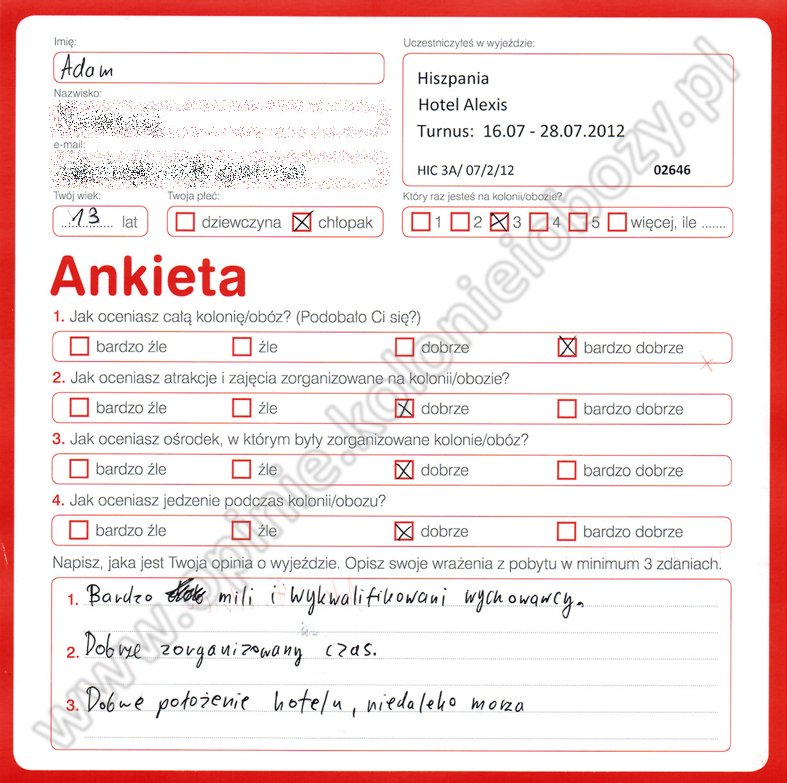 Imię:
Adam
Uczestniczyłeś w wyjeździe:
Hiszpania
Hotel Alexis
Turnus: 16.07 - 28.07.2012
HIC 3A/ 07/2/12 02646
Nazwisko:
e-mail:
Twój wiek: Twoja płeć: Który raz jesteś na kolonii/obozie?
13 lat dziewczyna chłopak 1 2 3 4 5 więcej, ile .......
Ankieta
1. Jak oceniasz całą kolonię/obóz? (Podobało Ci się?)
bardzo źle źle dobrze bardzo dobrze
2. Jak oceniasz atrakcje i zajęcia zorganizowane na kolonii/obozie?
bardzo źle źle dobrze bardzo dobrze
3. Jak oceniasz ośrodek, w którym były zorganizowane kolonie/obóz?
bardzo źle źle dobrze bardzo dobrze
4. Jak oceniasz jedzenie podczas kolonii/obozu?
bardzo źle źle dobrze bardzo dobrze
Napisz, jaka jest Twoja opinia o wyjeździe. Opisz swoje wrażenia z pobytu w minimum 3 zdaniach.
1. Bardzo mili i wykwalifikowani wychowawcy.
2. Dobrze zorganizowany czas.
3. Dobre położenie hotelu, niedaleko morza
www.opinie.kolonieiobozy.pl